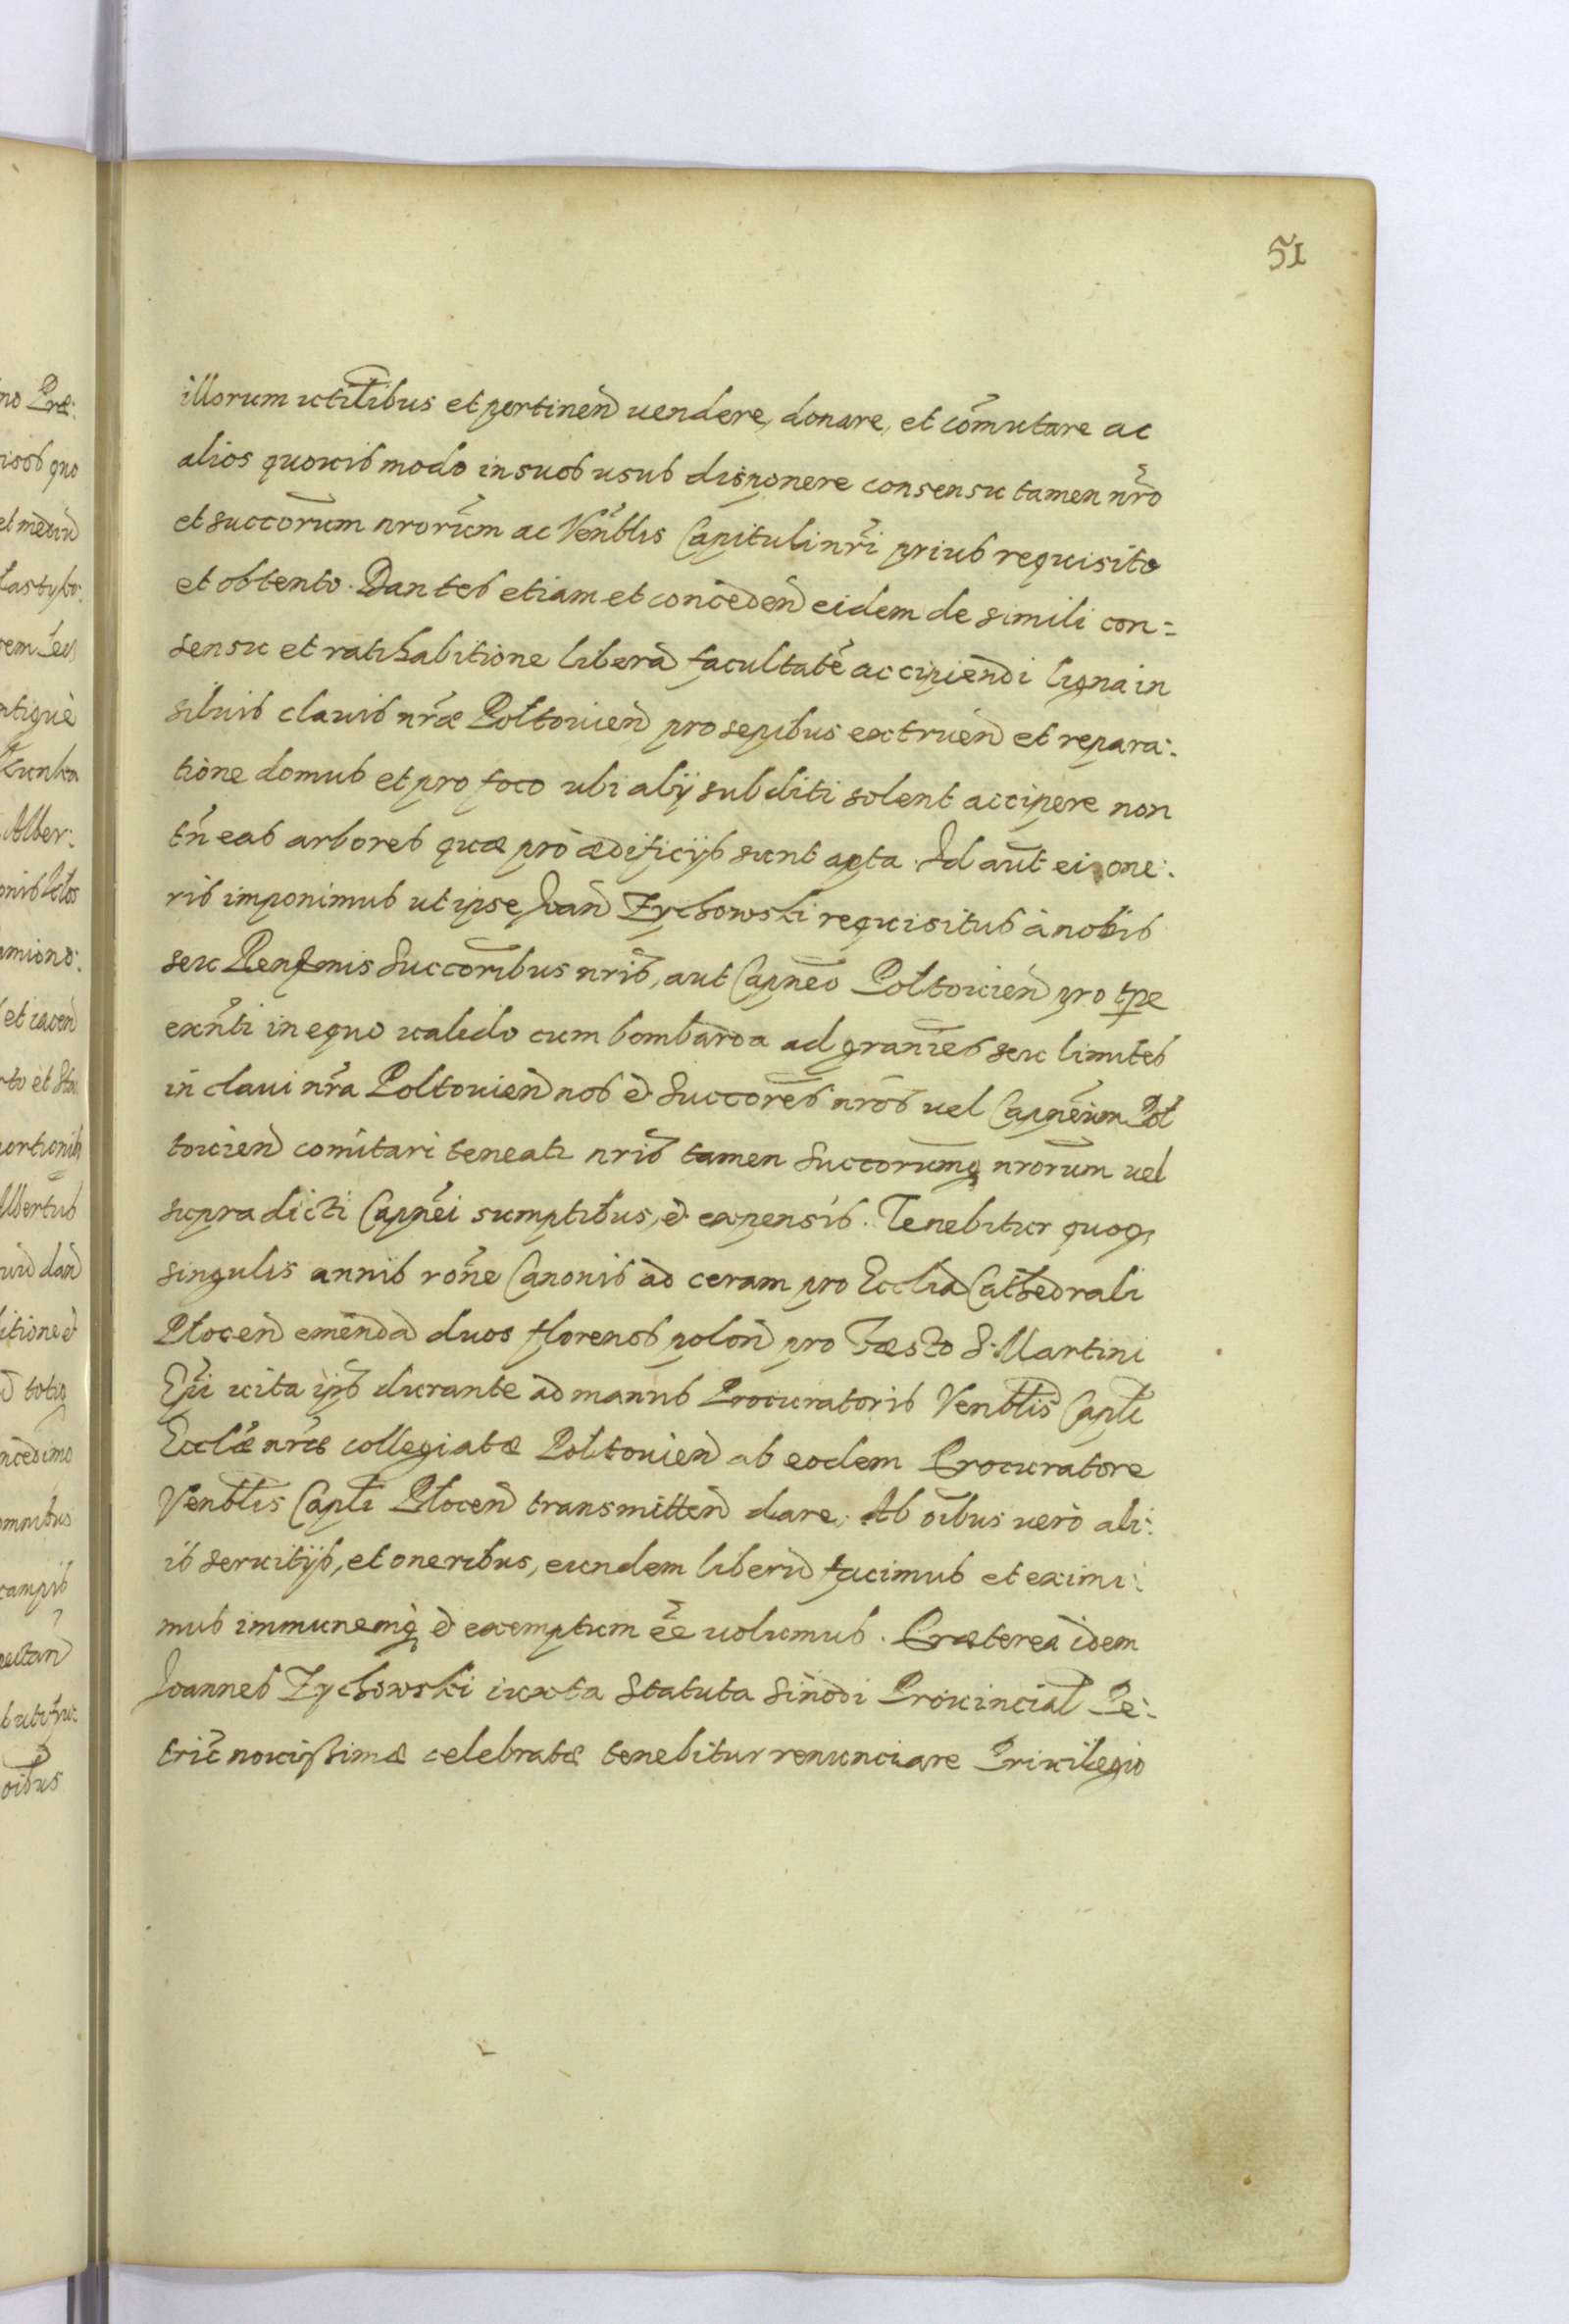 51
illorum utilibus et pertinen̄ uendere, donare, et com̄utare ac
alios quouis modo in suos usus disponere consensu tamen nr̄o
et succorūm nrorūm ac Venb̄lis Capituli nr̄i prius requisito
et obtento. Dantes etiam et conceden̄ eidem de simili con=
sensu et ratihabitione liberā facultatē accipiendi ligna in
siluis clauis nr̄æ Poltouien̄ pro sepibus extruen̄ et repara:
tione domus et pro foco ubi alij subditi solent accipere non
tn̄ eas arbores quæ pro ædificijs sunt apta. Id aūt ei one:
ris imponimus ut ipse Joan̄ Zychowski requisitus à nobis
seu Rend̄mis Succorībus nrīs, aut Capn̄eo Poltouien̄ pro tp̄e
exn̄ti in equo ualido cum bombarda ad granīes seu limites
in claui nr̄a Poltouien̄ nos & Succorēs nrōs uel Capnēum Pol
touien̄ comitari teneatr nrīs tamen Succorūmq nrorūm uel
supradicti Capn̄ei sumptibus, & expensis. Tenebitur quoq
singulis annis rōne Canonis ad ceram pro Eccliā Cathedrali
Plocen̄ emendā duos florenos polon̄ pro Fæsto S. Martini
Ep̄i uita ip̄s durante ad manus Procuratoris Venb̄lis Capl̄i
Eccl̄æ nr̄æ collegiatæ Poltouien̄ ab eodem Procuratore
Venb̄lis Capl̄i Plocen̄ transmitten̄ dare. Ab oībus uerò ali:
is seruitijs, et oneribus, eundem liberū facimus et eximi:
mus immunemq & exemptum ēe uolumus. Præterea idem
Joannes Zychowski iuxta Statuta Sinodi Prouincial̄ Pe:
tric̄ nouissimæ celebratæ tenebitur renunciare Priuilegio